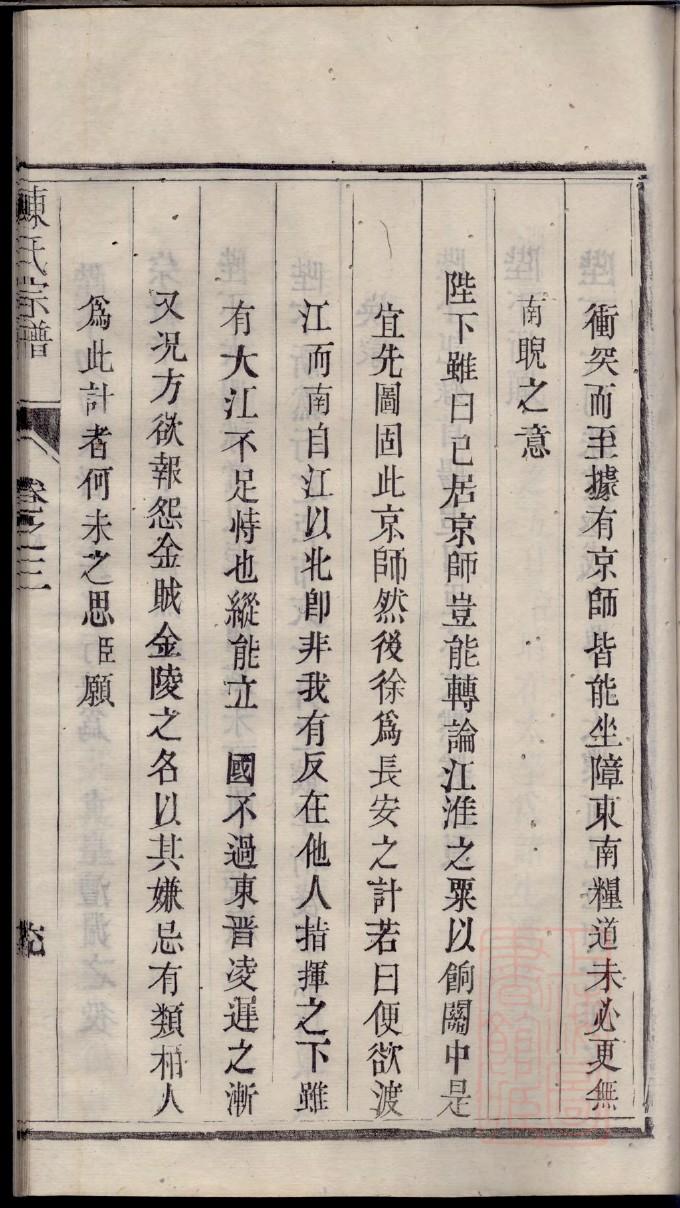 衝突而至據有京師皆能坐障東南糧道未必更無
南睨之意
陛下雖日已居京師豈能轉論江淮之粟以餉關中是
宜先圖固此京師然後徐爲長安之計若曰便欲渡
江而南自江以北卽非我有反在他人指揮之下雖
有大江不足恃也縱能立 國不過東晋凌遲之漸
又况方欲報怨金賊金陵之名以其嫌忌有類柏人
爲此計者何未之思臣願
陳氏宗譜 卷之三